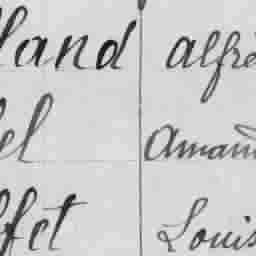 land Alfré
el Aman
ffet Louis